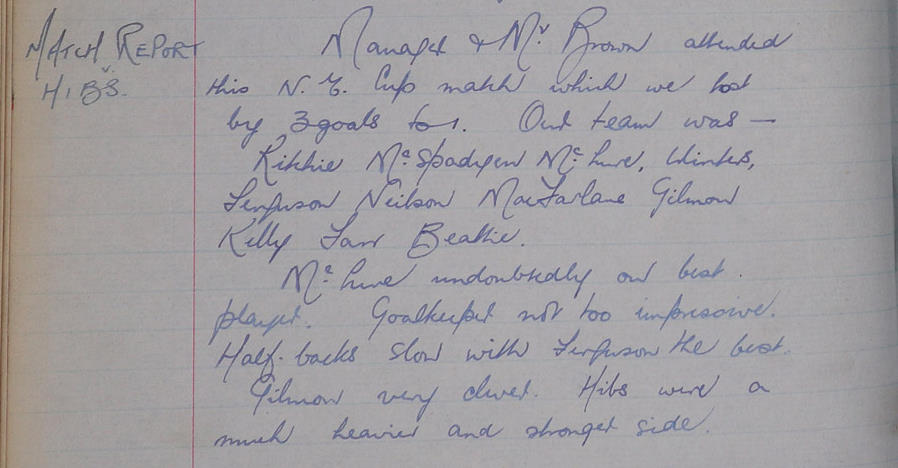 MATCH REPORT
v.
HIBS.
Manager & Mr Brown attended
this N. E. Cup match which we lost
by 3 goals to 1. Our team was —
Ritchie McSpadyen McLure, Winters,
Ferguson Neilson MacFarlane Gilmour
Kelly Farr Beattie.
McLure undoubtedly our best
player. Goalkeeper not too impressive.
Half-backs slow with Ferguson the best.
Gilmour very clever. Hibs were a
much heavier and stronger side.